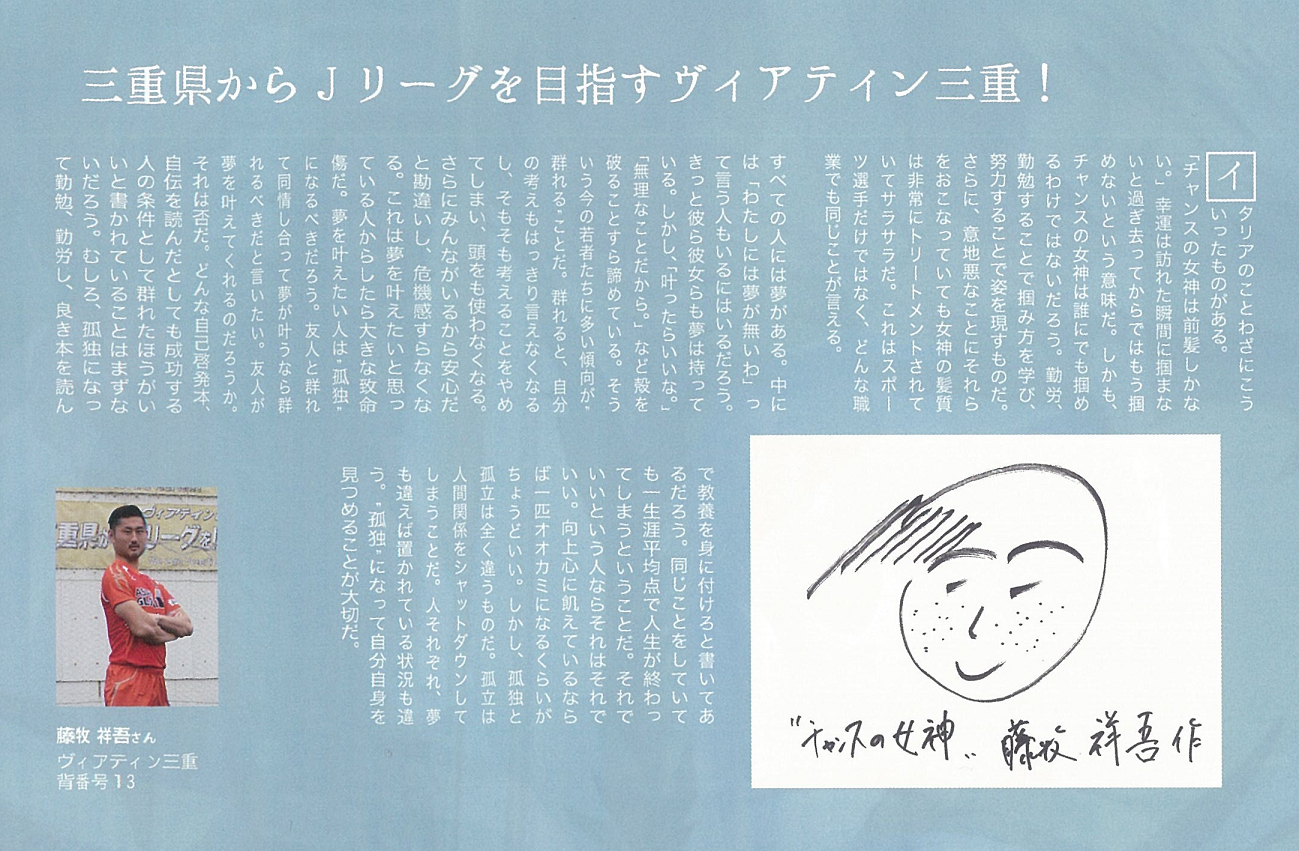 三重県からＪリーグを目指すヴィアティン三重！
イタリアのことわざにこう
いったものがある。
「チャンスの女神は前髪しかな
い。」幸運は訪れた瞬間に掴まな
いと過ぎ去ってからではもう掴
めないという意味だ。しかも、
チャンスの女神は誰にでも掴め
るわけではないだろう。勤労、
勤勉することで掴み方を学び、
努力することで姿を現すものだ。
さらに、意地悪なことにそれら
をおこなっていても女神の髪質
は非常にトリートメントされて
いてサラサラだ。これはスポー
ツ選手だけではなく、どんな職
業でも同じことが言える。
すべての人には夢がある。中に
は「わたしには夢が無いわ」っ
て言う人もいるにはいるだろう。
きっと彼ら彼女らも夢は持って
いる。しかし、「叶ったらいいな。」
「無理なことだから。」など殻を
破ることすら諦めている。そう
いう今の若者たちに多い傾向が〝
群れる〟ことだ。群れると、自分
の考えもはっきり言えなくなる
し、そもそも考えることをやめ
てしまい、頭をも使わなくなる。
さらにみんながいるから安心だ
と勘違いし、危機感すらなくな
る。これは夢を叶えたいと思っ
ている人からしたら大きな致命
傷だ。夢を叶えたい人は〝孤独〟
になるべきだろう。友人と群れ
て同情し合って夢が叶うなら群
れるべきだと言いたい。友人が
夢を叶えてくれるのだろうか。
それは否だ。どんな自己啓発本、
自伝を読んだとしても成功する
人の条件として群れたほうがい
いと書かれていることはまずな
いだろう。むしろ、孤独になっ
て勤勉、勤労し、良き本を読ん
で教養を身に付けろと書いてあ
るだろう。同じことをしていて
も一生涯平均点で人生が終わっ
てしまうということだ。それで
いいという人ならそれはそれで
いい。向上心に飢えているなら
ば一匹オオカミになるくらいが
ちょうどいい。しかし、孤独と
孤立は全く違うものだ。孤立は
人間関係をシャットダウンして
しまうことだ。人それぞれ、夢
も違えば置かれている状況も違
う。〝孤独〟になって自分自身を
見つめることが大切だ。
〝チャンスの女神〟 藤牧 祥吾 作
ヴィアティン
重県か リーグを
藤牧 祥吾さん
ヴィアティン三重
背番号13